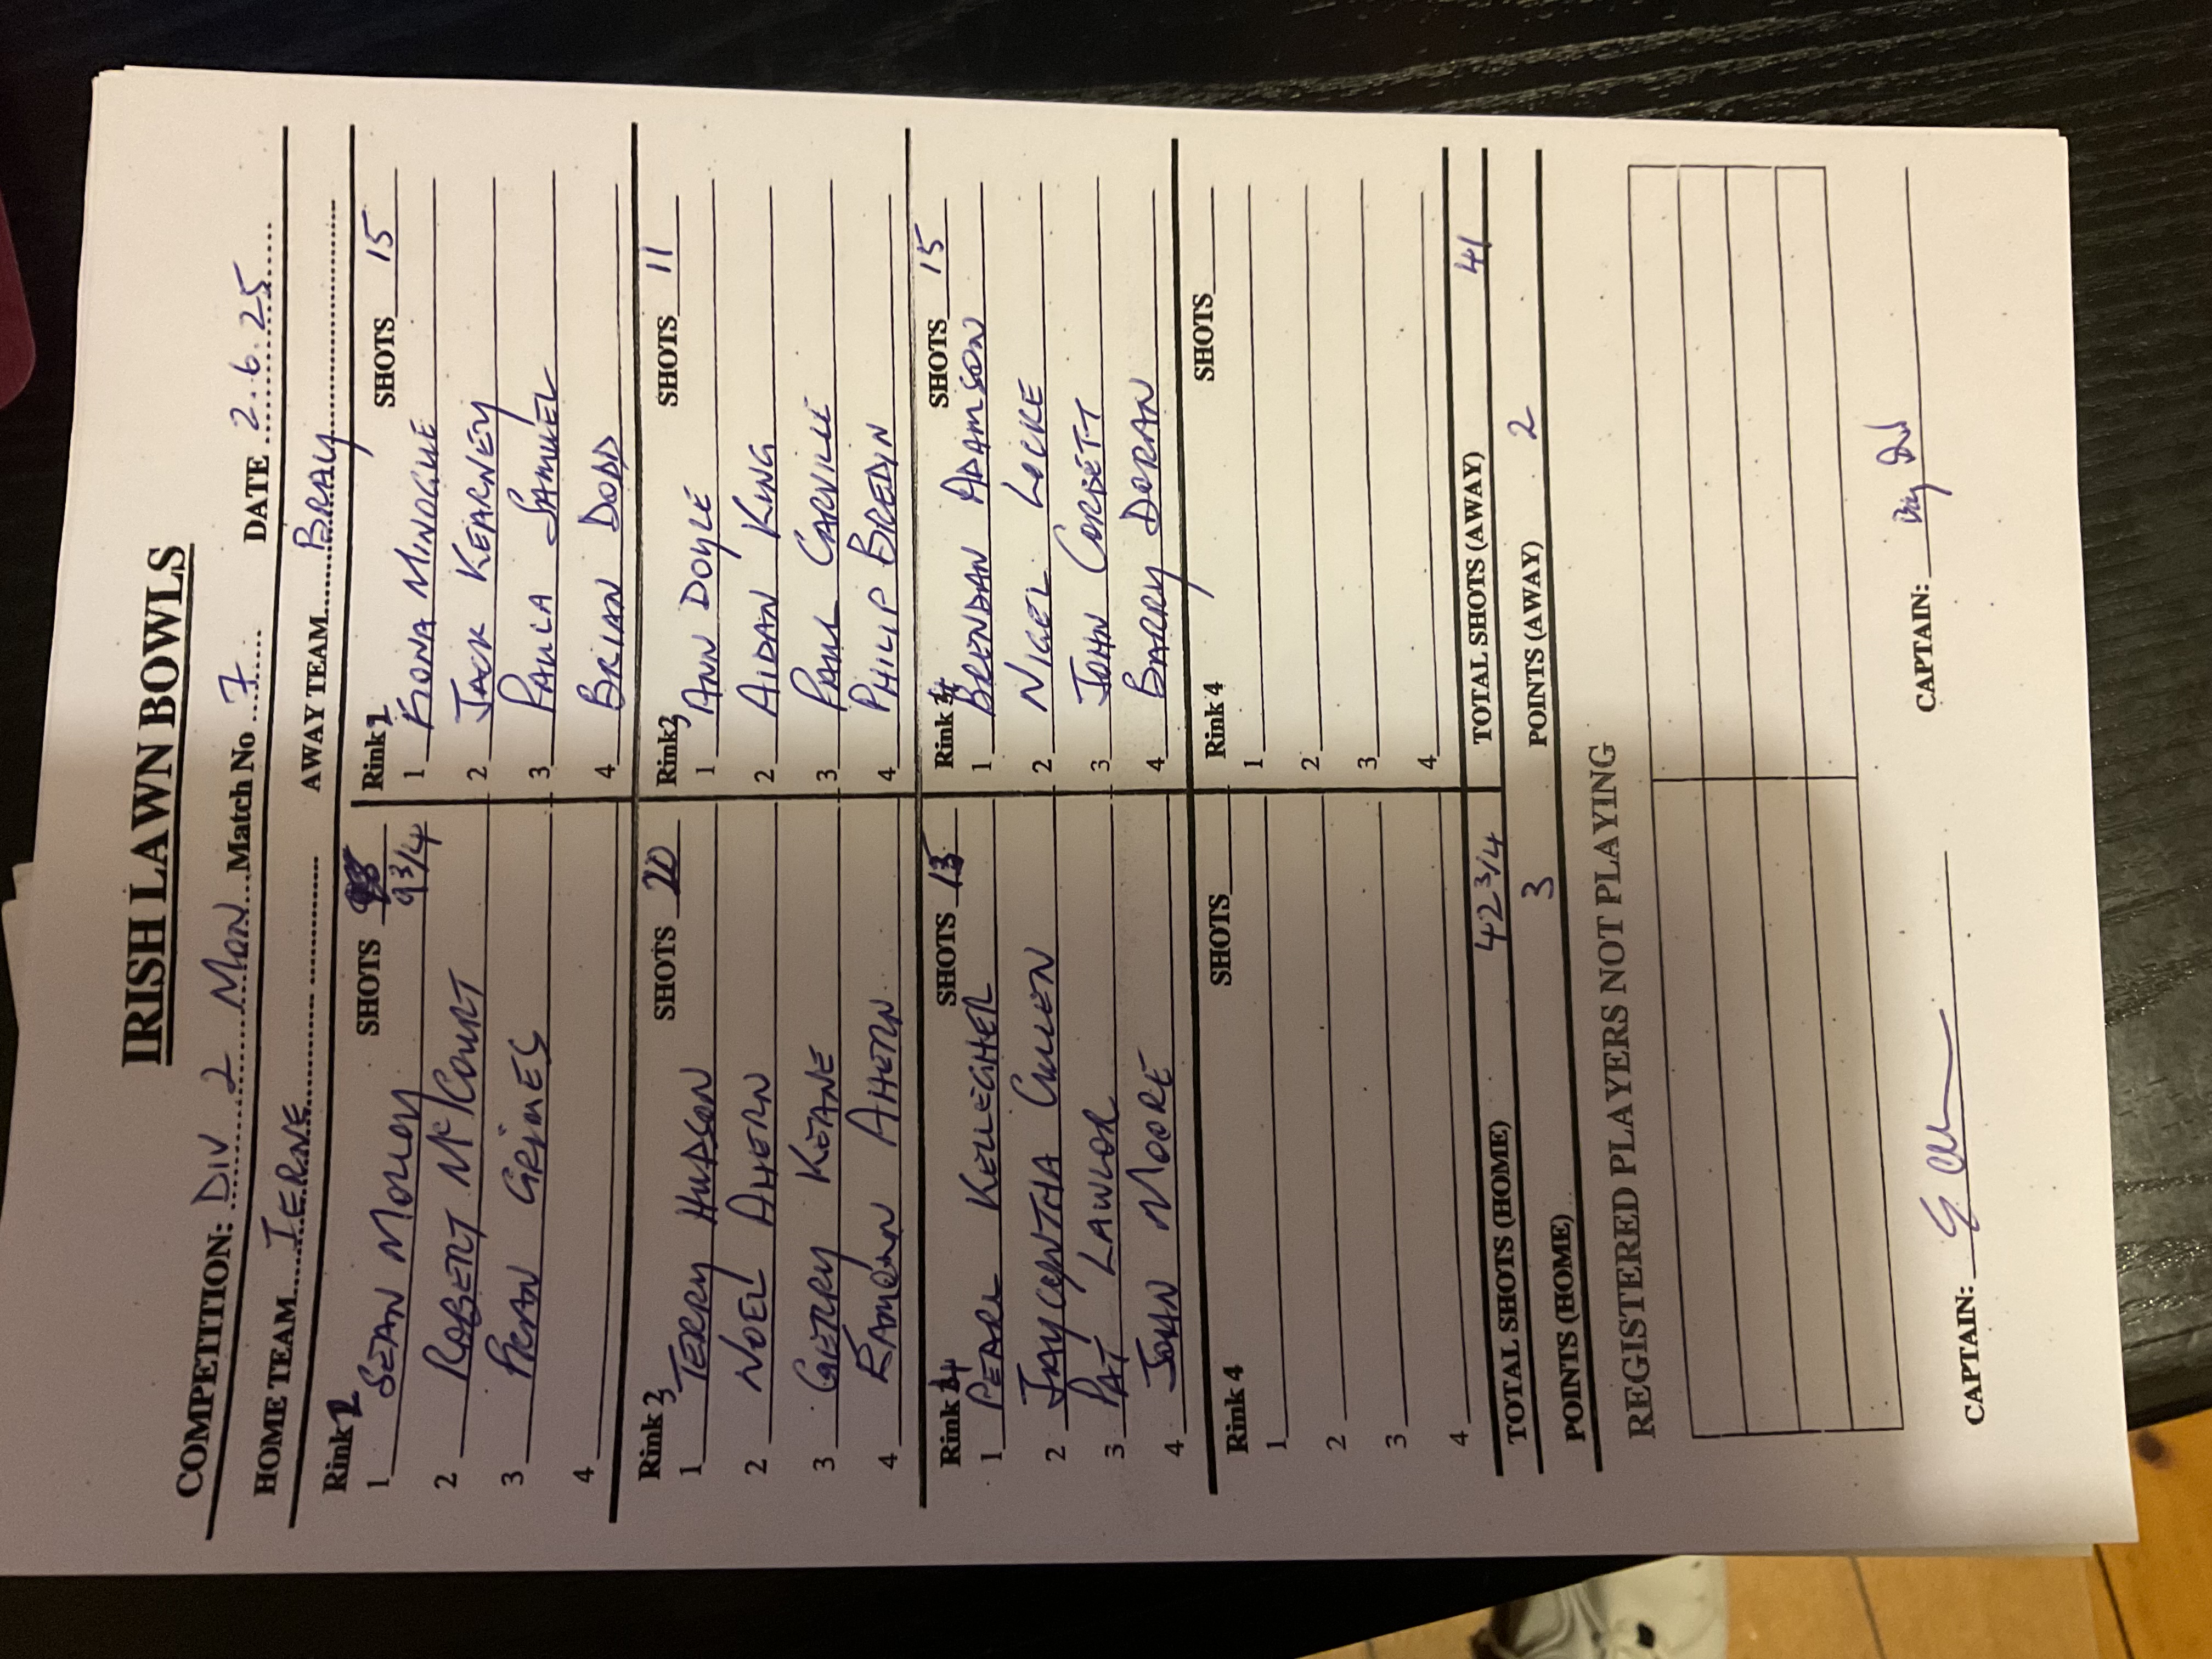 IRISH LAWN BOWLS
COMPETITION: DIV 2 MON Match No 7 DATE 2.6.25
HOME TEAM IERNE AWAY TEAM BRAY
Rink 2 SHOTS 9 3/4
1 SEAN MOLLOY
2 ROBERT McCOURT
3 GRIMES
4
Rink 2 SHOTS 15
1 MINOGUE
2 JACK KEARNEY
3 PAULA SAMUEL
4 BRIAN DODD
Rink 3 SHOTS 20
1 TERRY HUDSON
2 NOEL AHERN
3 GERRY KEANE
4 EAMONN AHERN
Rink 3 SHOTS 11
1 ANN DOYLE
2 AIDAN KING
3 PAUL CARVILLE
4 PHILIP BREDIN
Rink 4 SHOTS 13
1 PEARL KELLEGHER
2 JAYCYNTHA CULLEN
3 PAT LAWLOR
4 JOHN MOORE
Rink 4 SHOTS 15
1 BRENDAN ADAMSON
2 NIGEL LOCKE
3 JOHN CORBETT
4 BARRY DORAN
Rink 4 SHOTS
1
2
3
4
Rink 4 SHOTS
1
2
3
4
TOTAL SHOTS (HOME) 42 3/4 TOTAL SHOTS (AWAY) 41
POINTS (HOME) 3 POINTS (AWAY) 2
REGISTERED PLAYERS NOT PLAYING
CAPTAIN: CAPTAIN: